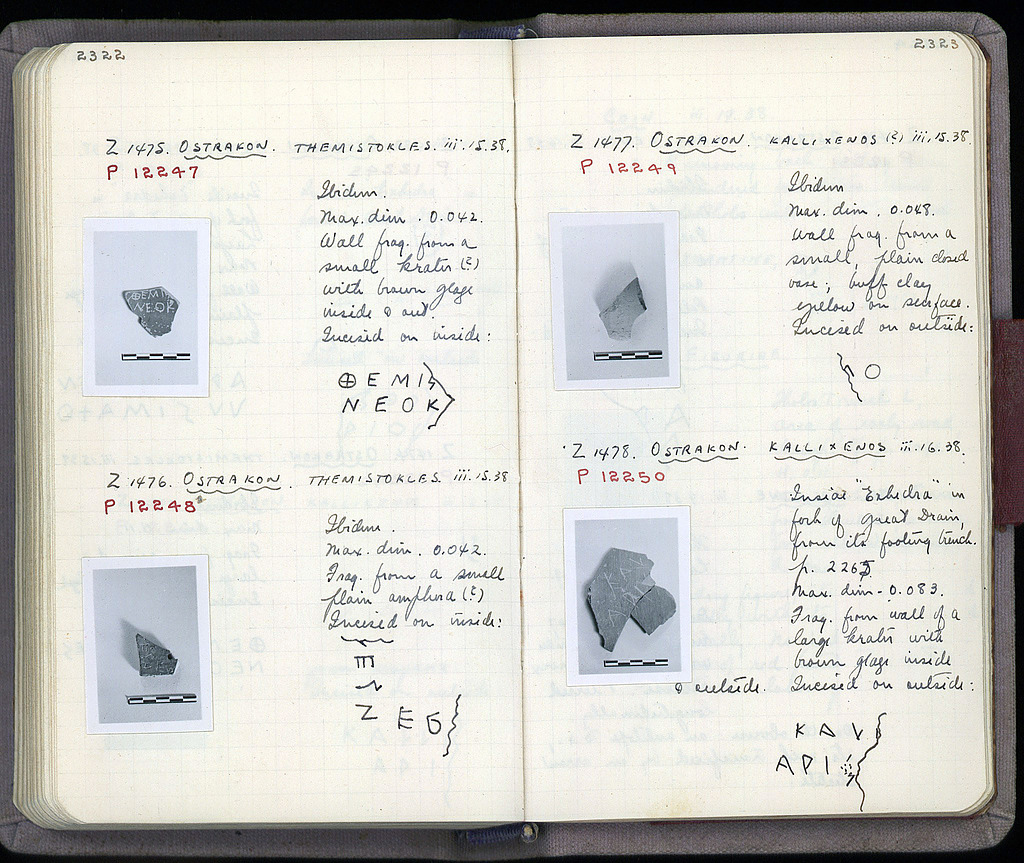 2322
Z 1475. OSTRAKON. THEMISTOKLES. iii.15.38.
P 12247
Ibidem.
Max. dim. 0.042.
Wall frag. from a
small krater (?)
with brown glaze
inside & out.
Incised on inside:
⊕EMI
NEOK
⊕EMI
NEOK
Z 1476. OSTRAKON. THEMISTOKLES. iii.15.38
P 12248
Ibidem.
Max. dim. 0.042.
Frag. from a small
plain amphora (?)
Incised on inside:
E
Z E
2323
Z 1477. OSTRAKON. KALLIXENOS (?) iii.15.38.
P 12249
Ibidem
Max. dim. 0.048.
Wall frag. from a
small, plain closed
vase; buff clay
yellow on surface.
Incised on outside:
O
Z 1478. OSTRAKON. KALLIXENOS iii.16.38.
P 12250
Inside "Exhedra" in
fork of Great Drain,
from its footing trench.
p. 2265
Max. dim. 0.083.
Frag. from wall of a
large krater with
brown glaze inside
& outside. Incised on outside:
K A
A P I